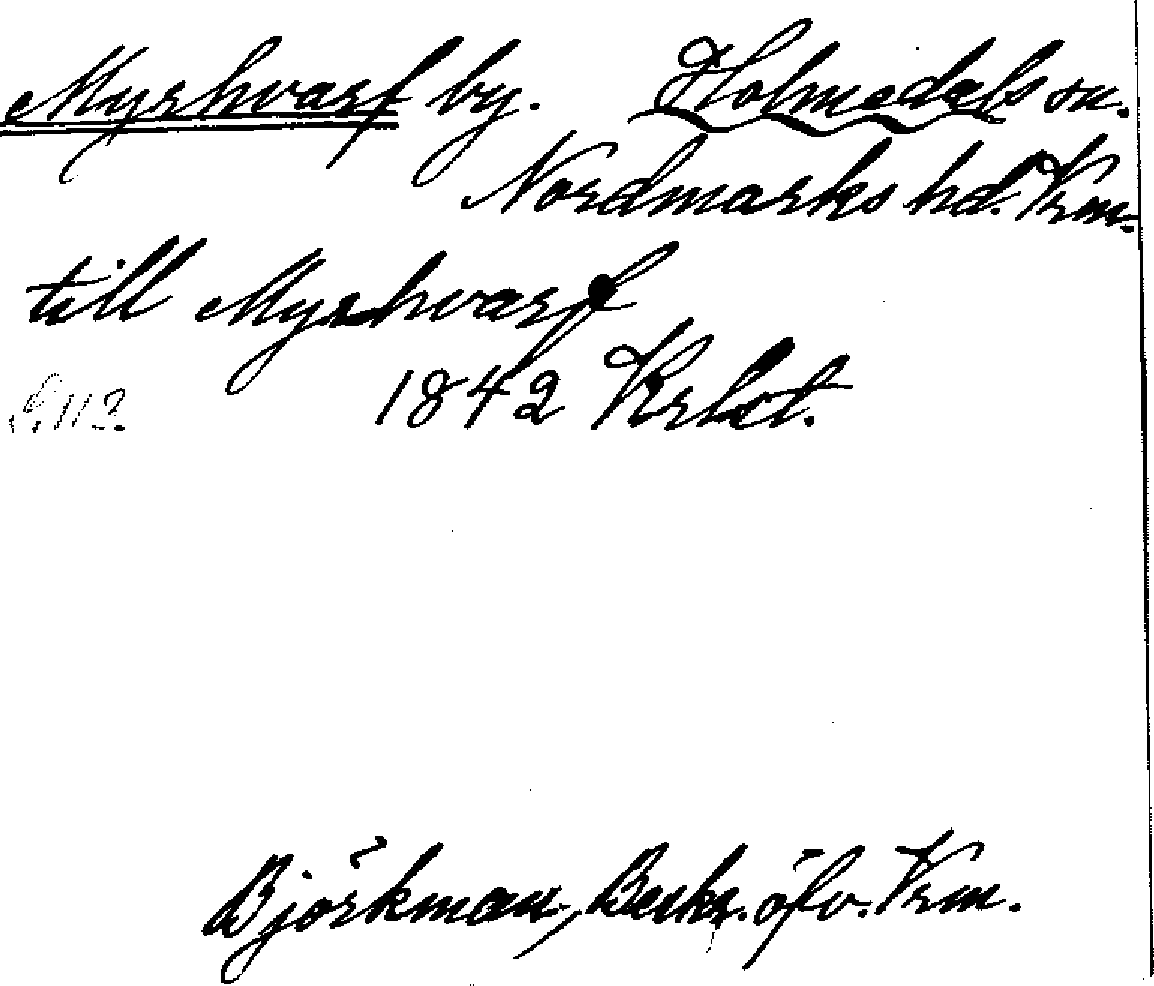 Myrhvarf by. Holmedals sn.
Nordmarks hd. Vrm.
till Myrhvarf
S. 112. 1842 Krlst.
Björkman, Beskr. öfv. Vrm.